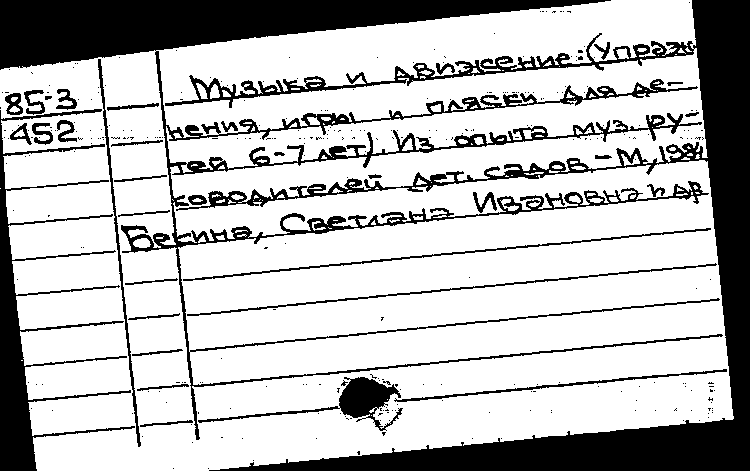 Музыка и движение: (Упраж-
85-3
нения, игры и пляски для де-
452
тей 6-7 лет). Из опыта муз. ру-
ководителей дет. садов. - М., 1984
Бекина, Светлана Ивановна и др